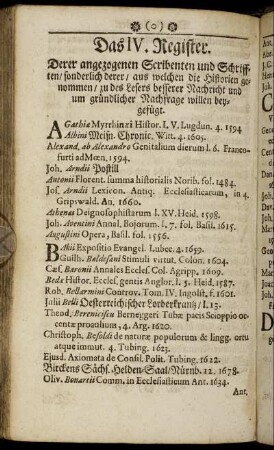 (o)
Das IV. Register.
Derer angezogenen Scribenten und Schriff-
ten/ sonderlich derer/ aus welchen die Historien ge-
nommen/ zu des Lesers besserer Nachricht und
um gründlicher Nachfrage willen bey-
gefügt.
AGathiæ Myrrhin ri Histor. L. V. Lugdun. 4. 1594
Albini Meißn. Chronic. Witt. 4. 1605.
Alexand. ab Alexandro Genitalium dierum l. 6. Franco-
furti ad Mœn. 1594.
Joh. Arndii Postill
Antonii Florent. summa historialis Norib. fol. 1484.
Jos. Arndii Lexicon. Antiq. Ecclesiasticarum, in 4.
Gripswald. An. 1660.
Athenæ Deipnosophistarum l. XV. Heid. 1598.
Joh. Aventini Annal. Bojorum. l. 7. fol. Basil. 1615.
Augustini Opera, Basil. fol. 1556.
BAkii Expositio Evangel. Lubec. 4. 1659.
Guilh. Buldesani Stimuli virtut. Colon. 1604.
Cæs. Baronii Annales Eccles. Col. Agripp. 1609.
Bedæ Histor. Eccles. gentis Anglor. l. 5. Heid. 1587.
Rob. Bellarmini Controv. Tom. IV. Ingolst. f. 1601.
Julii Belli Oesterreichischer Lorberkrantz/ l. 13.
Theod. Berenicien Berneggeri Tubæ pacis Scioppio oc-
centæ proaulium, 4. Arg. 1620.
Christoph. Besoldi de naturæ populorum & lingg. ortu
atque immut. 4. Tubing. 1623.
Ejusd. Axiomata de Consil. Polit. Tubing. 1622.
Birckens Sächs. Helden-Saal/ Nürnb. 12. 1678.
Oliv. Bonartii Comm. in Ecclesiasticum Ant. 1634.
Ant.